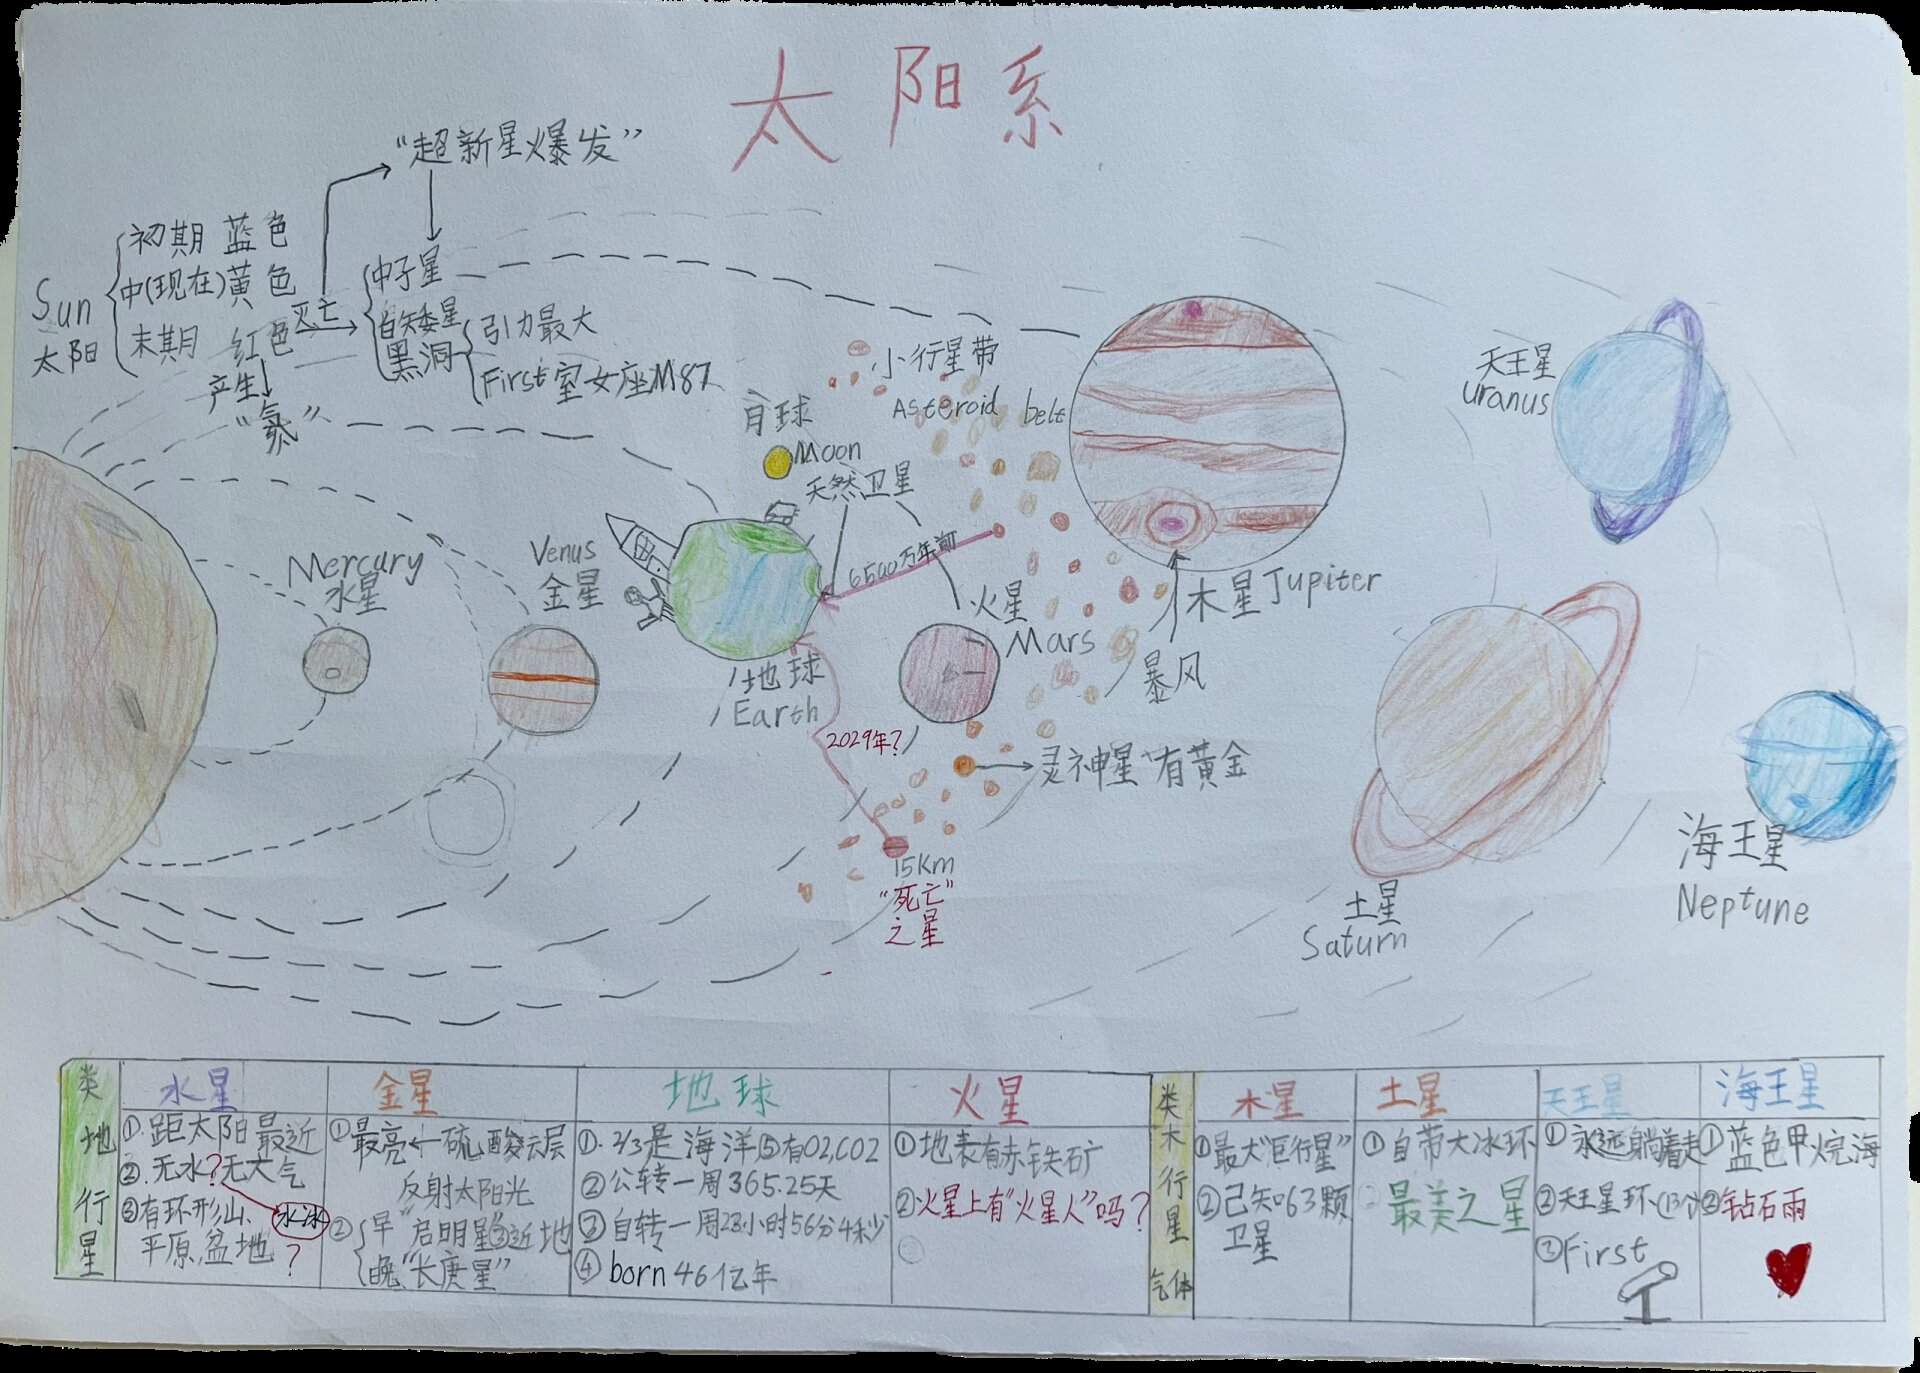 太阳系
“超新星爆发”
Sun
太阳
初期 蓝色
中(现在)黄色
末期 红色
灭亡
产生
“氦”
中子星
白矮星
黑洞
引力最大
First室女座M87
小行星带
Asteroid belt
月球
Moon
天然卫星
6500万年前
Mercury
水星
Venus
金星
地球
Earth
火星
Mars
木星Jupiter
暴风
天王星
Uranus
土星
Saturn
海王星
Neptune
2029年?
灵神星“有黄金
15Km
“死亡”
之星
类地行星
水星
①.距太阳最近
②.无水?无大气
③有环形山、
平原,盆地
水冰
?
金星
①最亮←硫酸云层
反射太阳光
②早“启明星”③近地
晚“长庚星”
地球
①.2/3是海洋⑤有O2,CO2
②公转一周365.25天
③自转一周23小时56分4秒
④born 46亿年
火星
①地表有赤铁矿
②火星上有“火星人”吗?
类木行星
气体
木星
①最大“巨行星”
②已知63颗
卫星
土星
①自带大冰环
②最美之星
天王星
①永远躺着走
②天王星环(13个)
③First
海王星
①蓝色甲烷海
②钻石雨